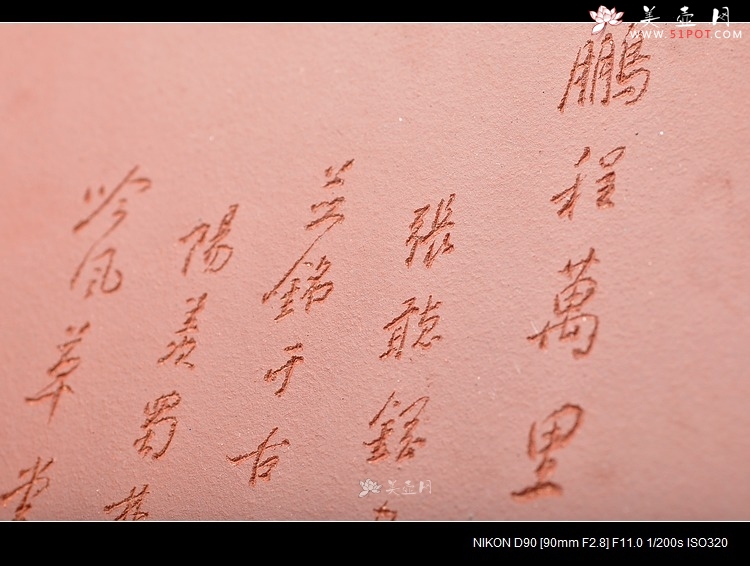 美壶网
WWW.51POT.COM
鵬程萬里
張聽
並銘于古
陽羨蜀
吟风草堂
美壶网
NIKON D90 [90mm F2.8] F11.0 1/200s ISO320